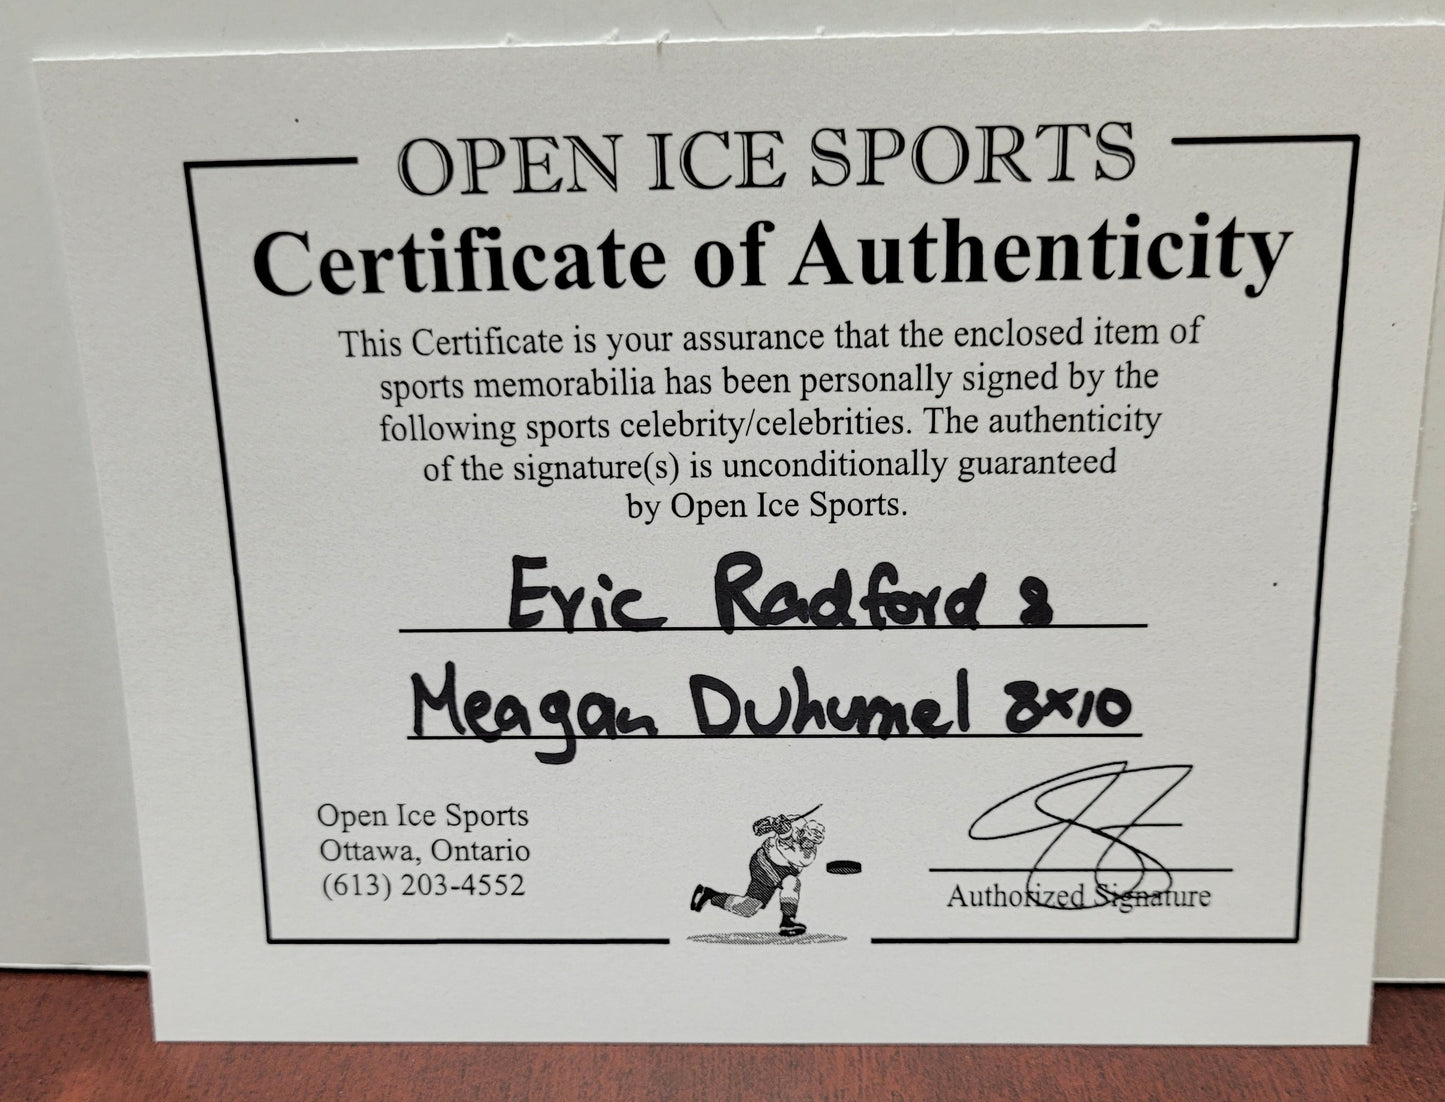 OPEN ICE SPORTS
Certificate of Authenticity
This Certificate is your assurance that the enclosed item of
sports memorabilia has been personally signed by the
following sports celebrity/celebrities. The authenticity
of the signature(s) is unconditionally guaranteed
by Open Ice Sports.
Eric Radford &
Meagan Duhumel 8x10
Open Ice Sports
Ottawa, Ontario
(613) 203-4552
Authorized Signature